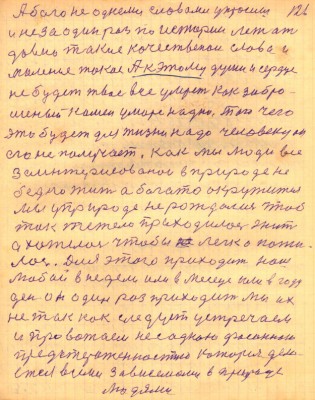 А бога не однеми словами упросиш 126
и не за один раз по истории лет ат
давно такие качественои слова и
маленье такое А к этому души и сердце
не будет твое все умрет как забро-
шеный камен умиренадно, того чего
это будет для жизни надо человеку он
его не получает. Как мы люди все
заинтерисованои в природе не
бедно жит а богато окружится
Мы у природе не рождалис чтоб
так тяжело приходилос жит
а хотелос чтобы легко пожи-
лос. Для этого приходит наш
любой в недели или в месяце или в году
ден он один раз приходит мы их
не так как следует устречаем
и провожаем не с одною
котория дела-
ется всеми зависемоми в природе
людями